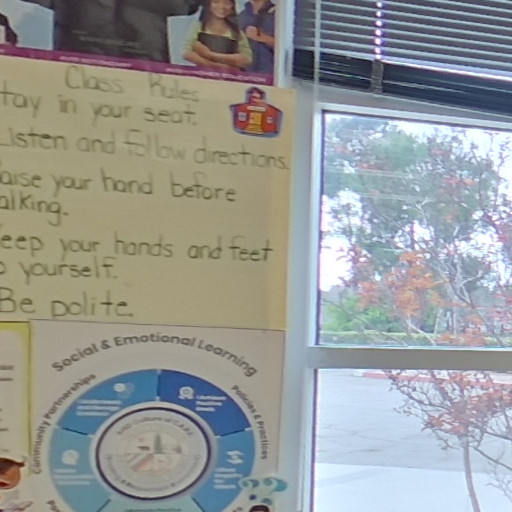 Class Rules
tay in your seat.
Listen and follow directions.
aise your hand before
alking.
eep your hands and feet
o yourself.
Be polite.
Social & Emotional Learning
Community Partnerships
Policies & Practices